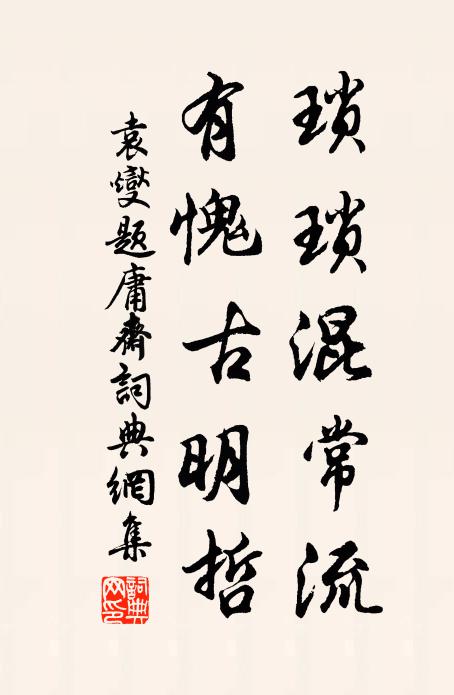 瑣瑣混常流
有愧古明哲
袁燮題庸齋詞典網集
詞典網印